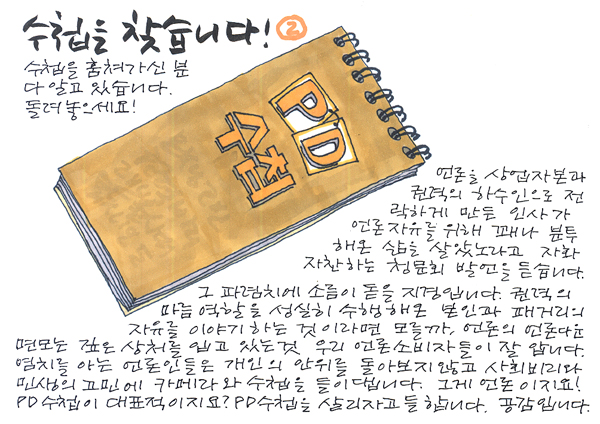 수첩을 찾습니다! 2
수첩을 훔쳐가신 분
다 알고 있습니다.
돌려놓으세요!
PD
수첩
언론을 상업자본과
권력의 하수인으로 전
락하게 만든 인사가
언론자유를 위해 꽤나 분투
해온 삶을 살았노라고 자화
자찬하는 청문회 발언을 듣습니다.
그 파렴치에 소름이 돋을 지경입니다. 권력의
마름역할을 성실히 수행해온 본인과 패거리의
자유를 이야기하는 것이라면 모를까, 언론의 언론다운
면모는 깊은 상처를 입고 있는것 우리 언론소비자들이 잘 압니다.
염치를 아는 언론인들은 개인의 안위를 돌아보지않고 사회비리와
민생의 고민에 카메라와 수첩을 들이댑니다. 그게 언론이지요!
PD수첩이 대표적이지요? PD수첩을 살리자고들 합니다. 공감입니다.